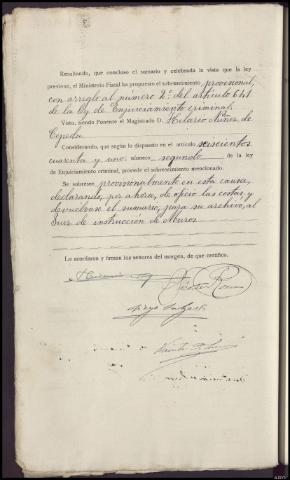 Resultando, que concluso el sumario y celebrada la vista que la ley
previene, el Ministerio Fiscal ha propuesto el sobreseimiento provisional,
con arreglo al número 2º del artículo 641
de la ley de Enjuiciamiento criminal.
Visto, siendo Ponente el Magistrado D. Hilario Núñez de
Cepeda
Considerando, que según lo dispuesto en el artículo seiscientos
cuarenta y uno, número segundo de la ley
de Enjuiciamiento criminal, procede el sobreseimiento mencionado.
Se sobresee provisionalmente en esta causa,
declarando, por ahora, de oficio las costas, y
devuélvase el sumario, para su archivo, al
Juez de instrucción de Muros.
Lo acordaron y firman los señores del margen, de que certifico.